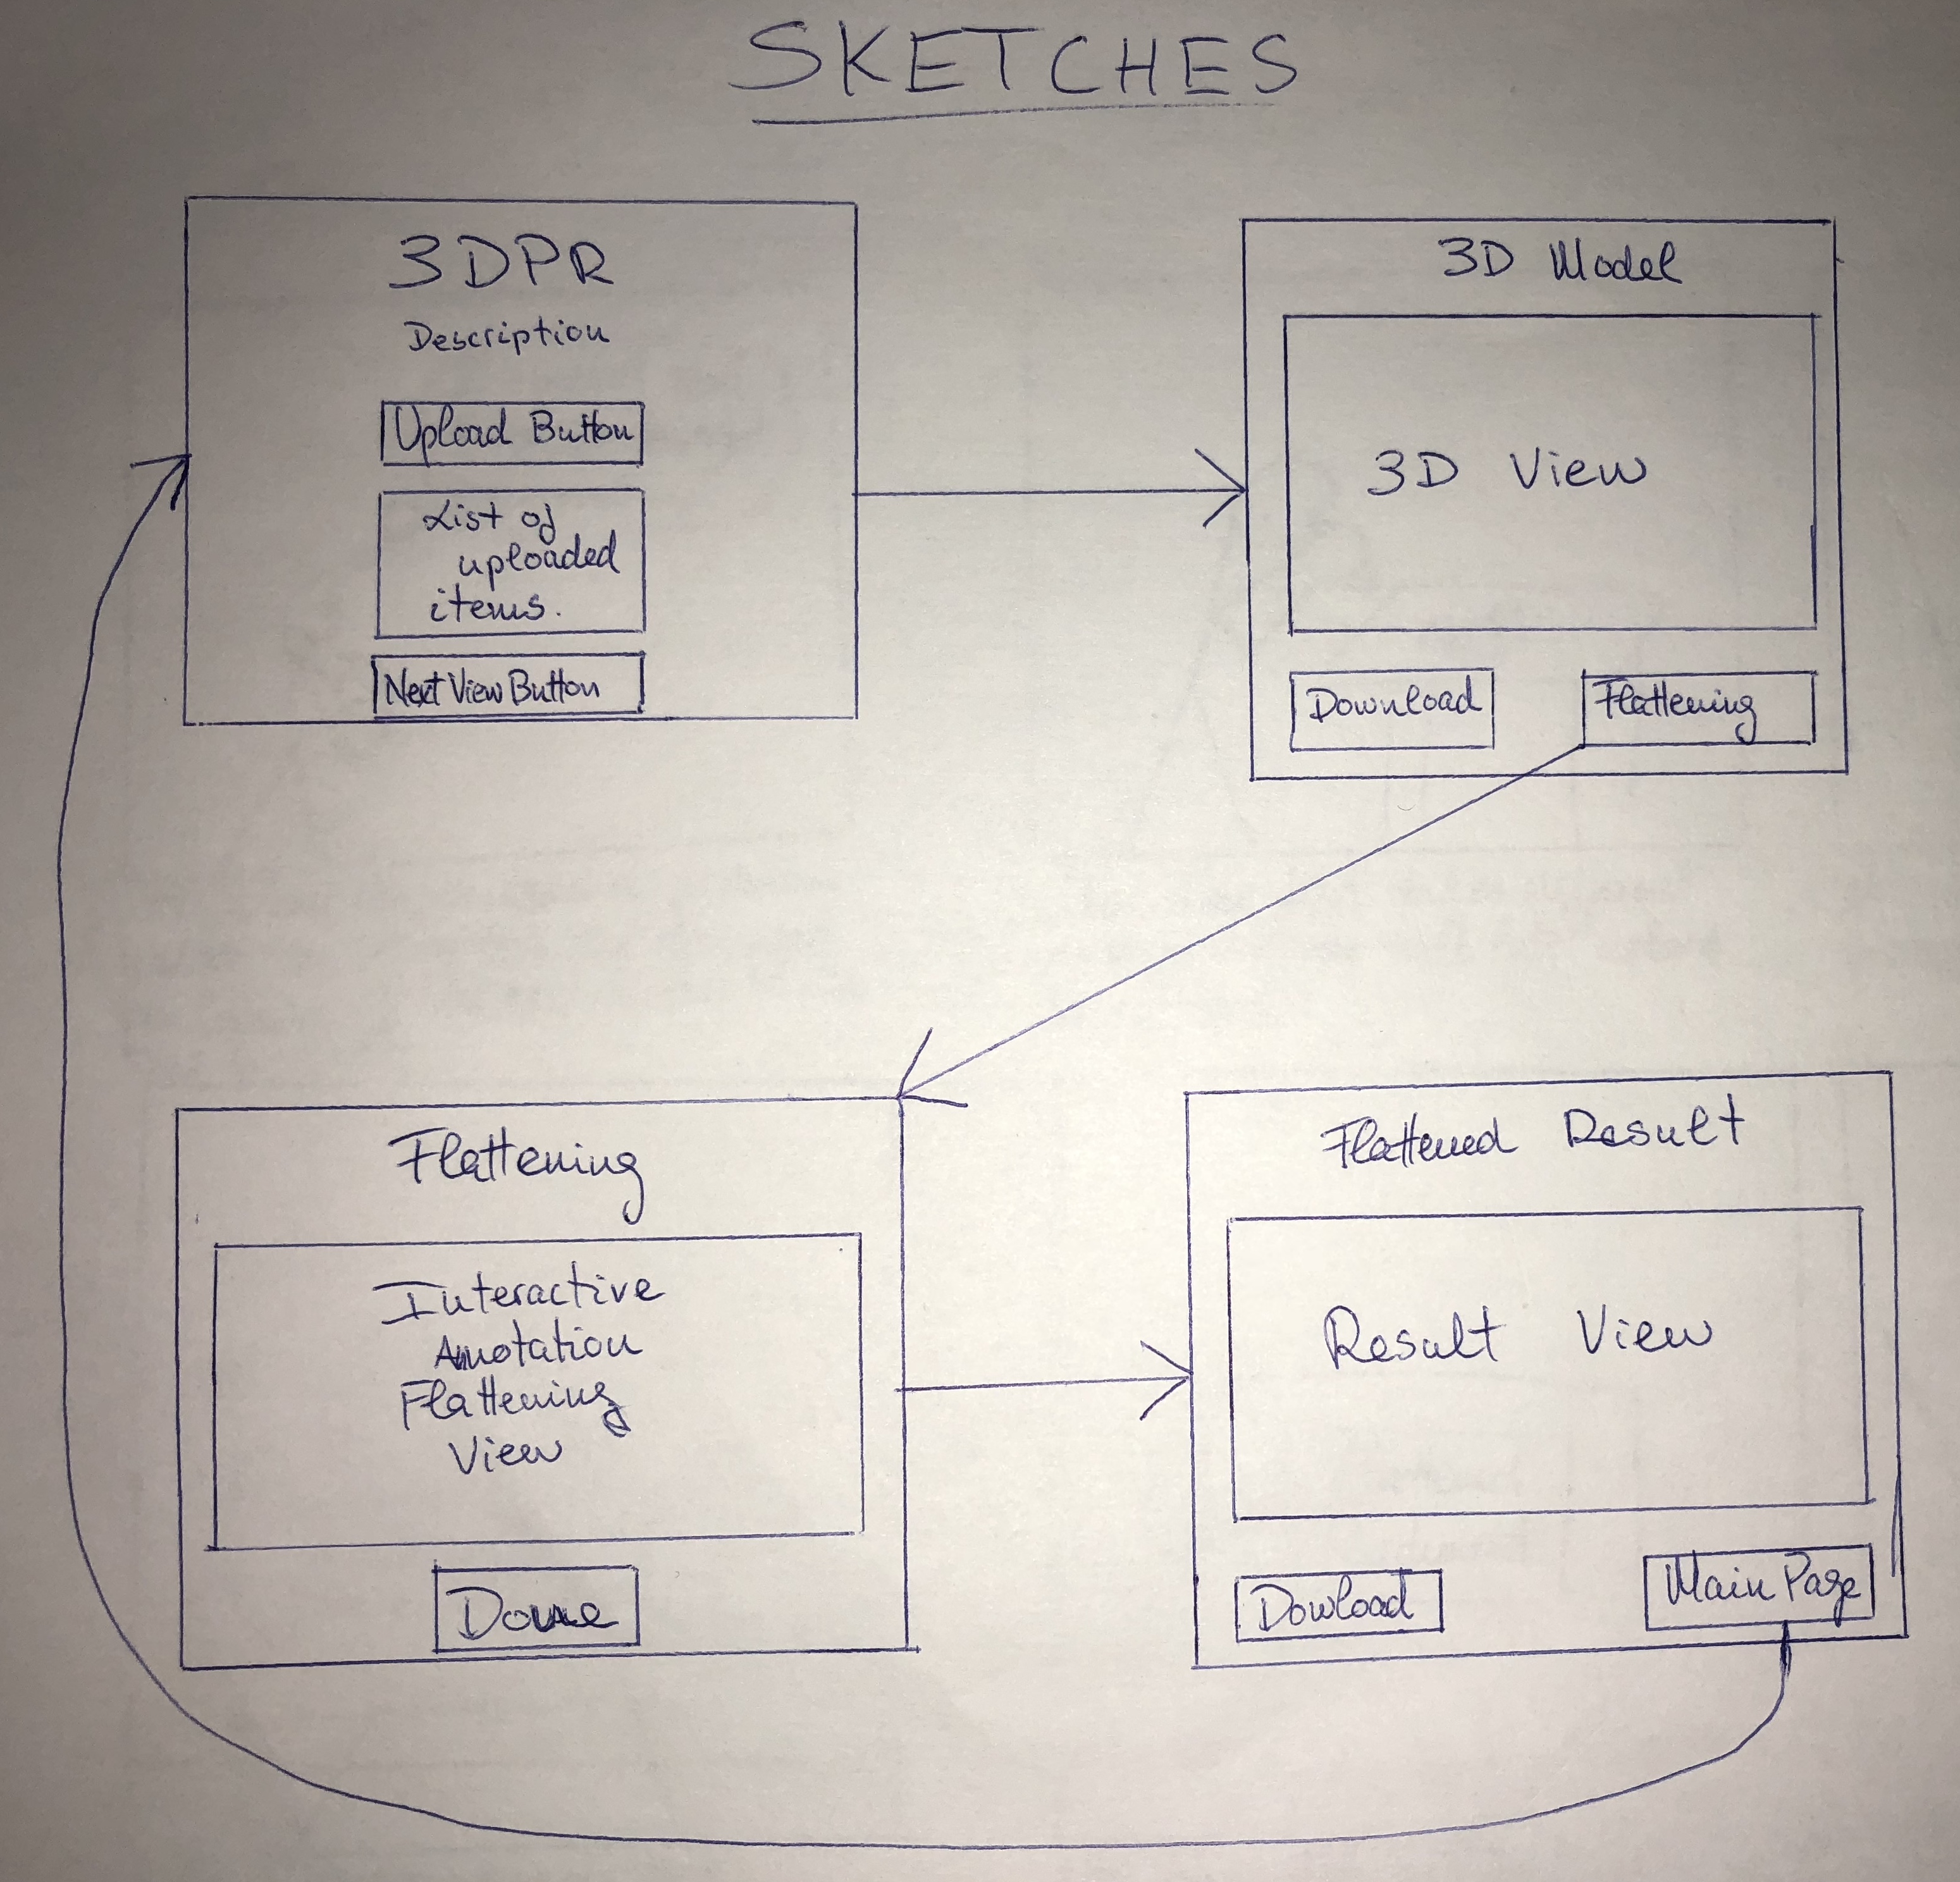 SKETCHES
3DPR
Description
Upload Button
List of
uploaded
items.
Next View Button
3D Model
3D View
Download
Flattening
Flattening
Interactive
Annotation
Flattening
View
Done
Flattened Result
Result View
Dowload
Main Page